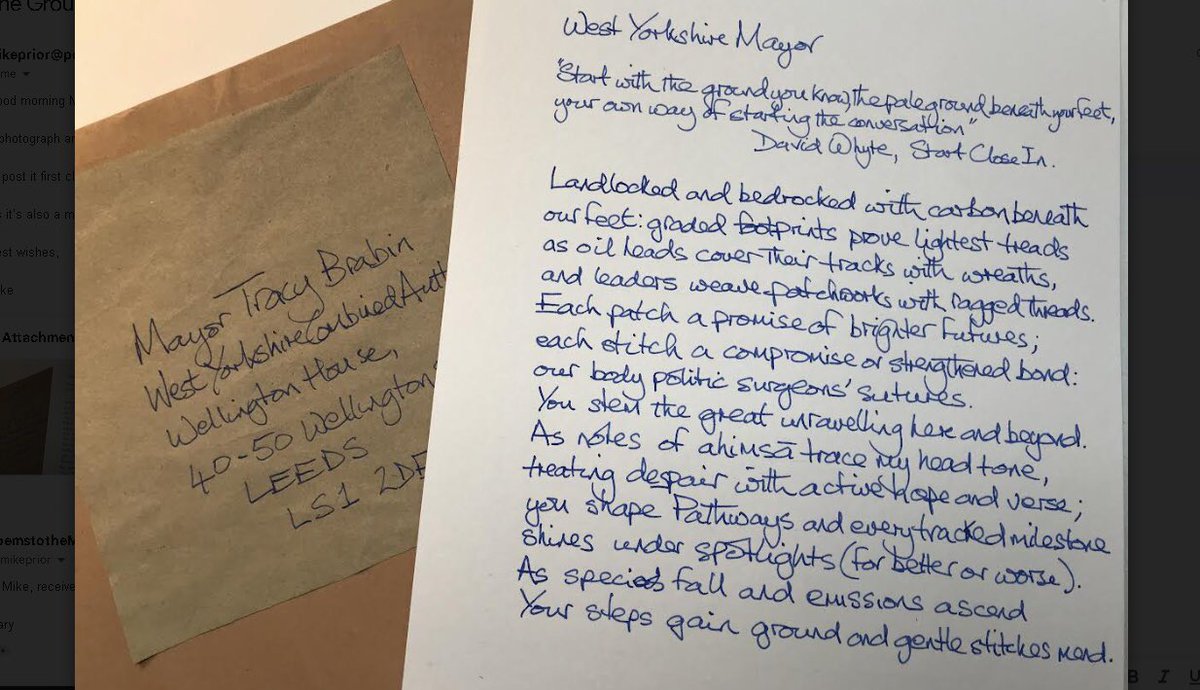 he Grou
ikeprior@p
me
ood morning M
photograph an
post it first cl
s it's also a m
est wishes,
ke
Attachment
oemstotheM
mikeprior
Mike, receive
ary
Mayor Tracy Brabin
West Yorkshire Combined Auth
Wellington House,
40-50 Wellington
LEEDS
LS1 2DE
West Yorkshire Mayor
"Start with the ground you know, the pale ground beneath your feet,
your own way of starting the conversation"
David Whyte, Start Close In.
Landlocked and bedrocked with carbon beneath
our feet: graded footprints prove lightest treads
as oil heads cover their tracks with wreaths,
and leaders weave patchworks with ragged threads.
Each patch a promise of brighter futures;
each stitch a compromise or strengthened bond:
our body politic surgeons' sutures.
You stem the great unravelling here and beyond.
As notes of ahimsā trace my head tone,
treating despair with active hope and verse;
you shape Pathways and every tracked milestone
shines under spotlights (for better or worse).
As species fall and emissions ascend
Your steps gain ground and gentle stitches mend.
B I U